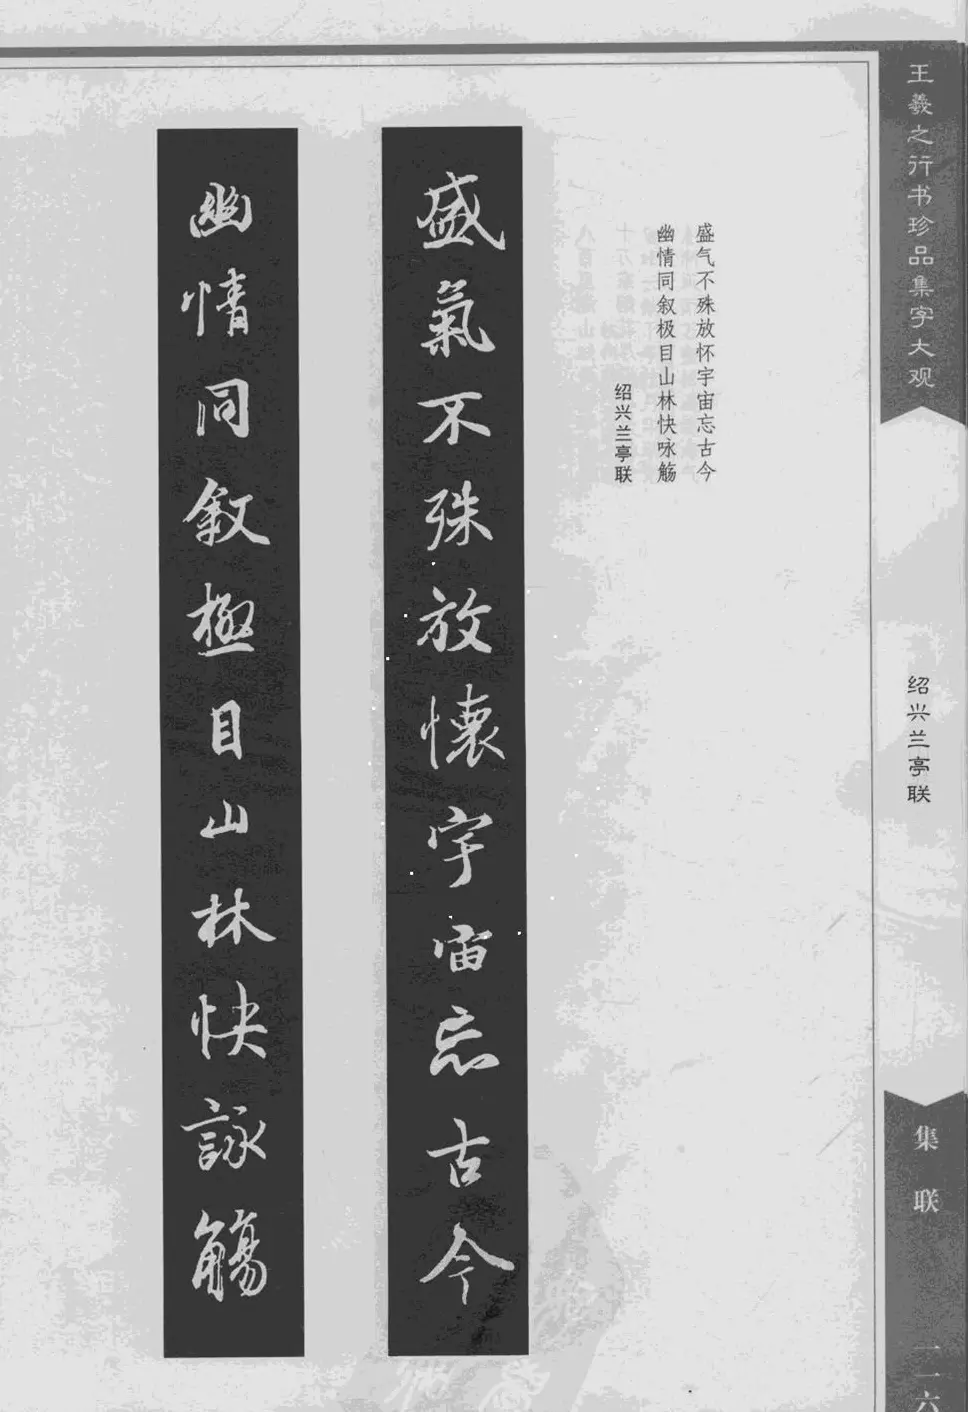 王羲之行书珍品集字大观
绍兴兰亭联
集联
一一六
盛气不殊放怀宇宙忘古今
幽情同叙极目山林快咏觞
绍兴兰亭联
盛氣不殊放懷宇宙忘古今
幽情同叙極目山林快詠觴